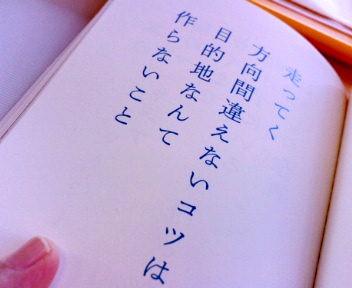 走ってく
方向間違えないコツは
目的地なんて
作らないこと